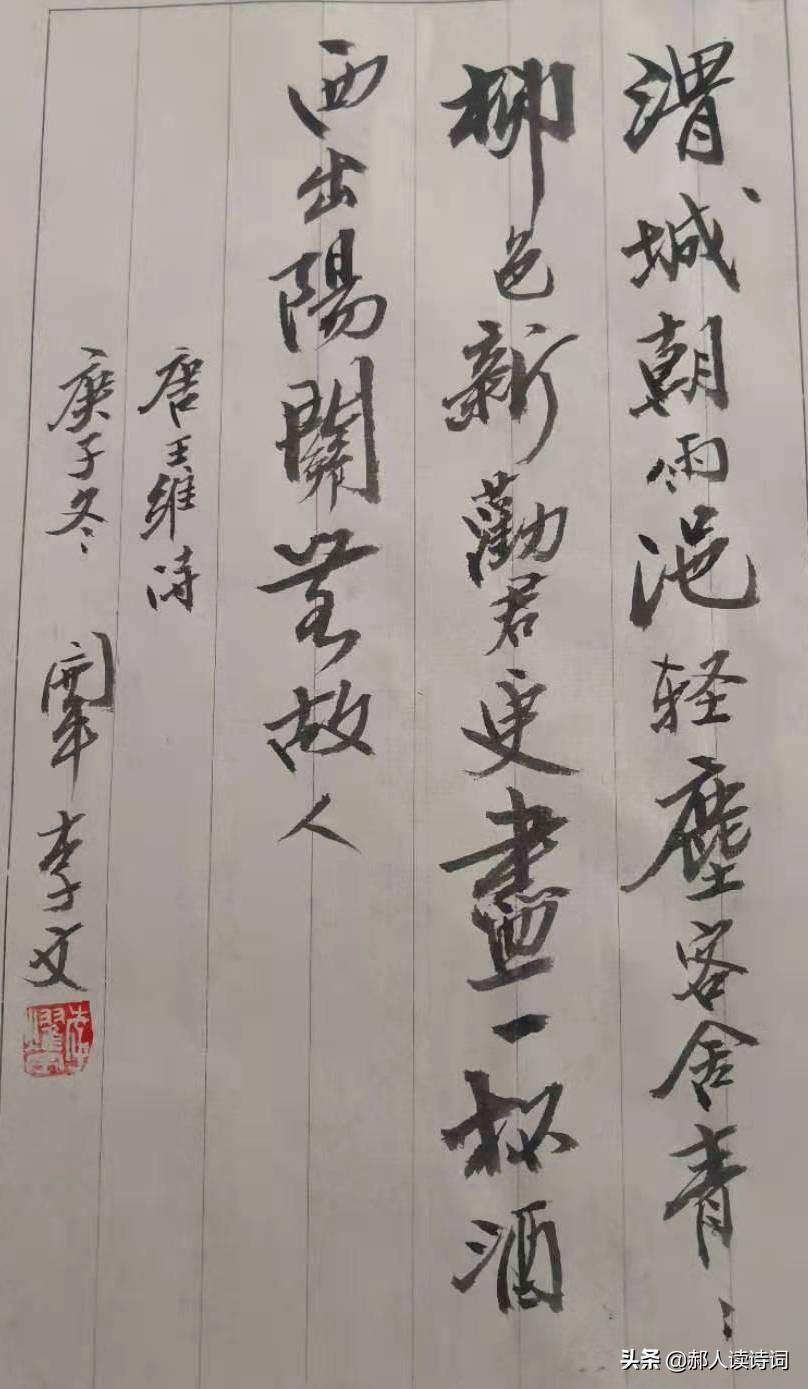 渭城朝雨浥轻塵客舍青々
柳色新勸君更盡一杯酒
西出陽關無故人
唐王維詩
庚子冬 李文
头条 @郝人读诗词